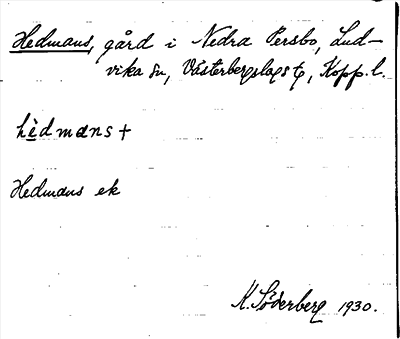 Hedmans, gård i Nedra Persbo, Lud-
vika sn, Västerbergslags tg, Kopp. l.
hèdmans +
Hedmans ek
K. Söderberg 1930.